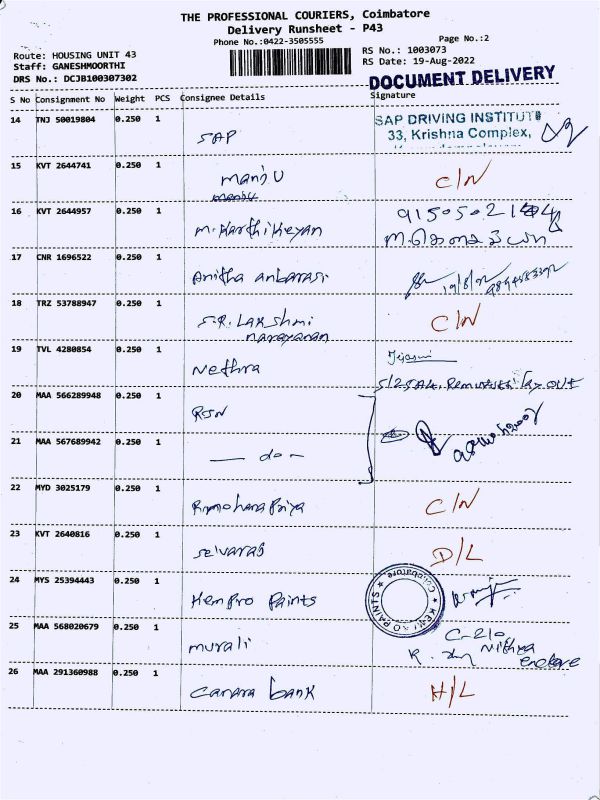 THE PROFESSIONAL COURIERS, Coimbatore
Delivery Runsheet - P43
Phone No.:0422-3505555
Page No.:2
Route: HOUSING UNIT 43
RS No.: 1003073
Staff: GANESHMOORTHI
RS Date: 19-Aug-2022
DRS No.: DCJB100307302
DOCUMENT DELIVERY
S No Consignment No Weight PCS Consignee Details Signature
14 TNJ 50019804 0.250 1
SAP
SAP DRIVING INSTITUTE
33, Krishna Complex,
15 KVT 2644741 0.250 1
Manju
C/N
16 KVT 2644957 0.250 1
M. Karthikeyan
17 CNR 1696522 0.250 1
Anitha anbarasi
19/8/22
18 TRZ 53788947 0.250 1
S.R. Lakshmi
narayanan
C/N
19 TVL 4280854 0.250 1
Nethra
20 MAA 566289948 0.250 1
RJN
21 MAA 567689942 0.250 1
— do —
22 MYD 3025179 0.250 1
C/N
23 KVT 2640816 0.250 1
Selvaraj
D/L
24 MYS 25394443 0.250 1
Kempro Paints
25 MAA 568020679 0.250 1
murali
C-210
Nithya
26 MAA 291360988 0.250 1
Canara bank
H/L